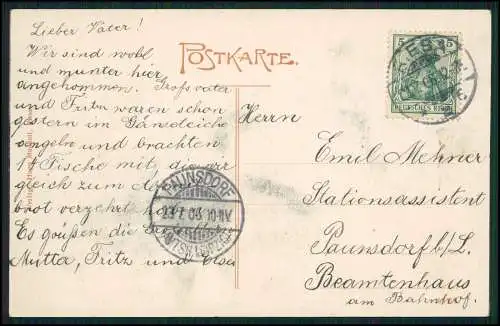 Lieber Vater!
Wir sind wohl
und munter hier
angekommen. Großvater
und Fritz waren schon
gestern im Gänseteiche
angeln und brachten
14 Fische mit, die wir
gleich zum
brot verzehrt
Es grüßen die
Mutter, Fritz und Else
POSTKARTE.
DEUTSCHES REICH
PAUNSDORF
23.7.06. 10-11V
Herrn
Emil Mehner
Stationsassistent
Paunsdorf b/L.
Beamtenhaus
am Bahnhof.